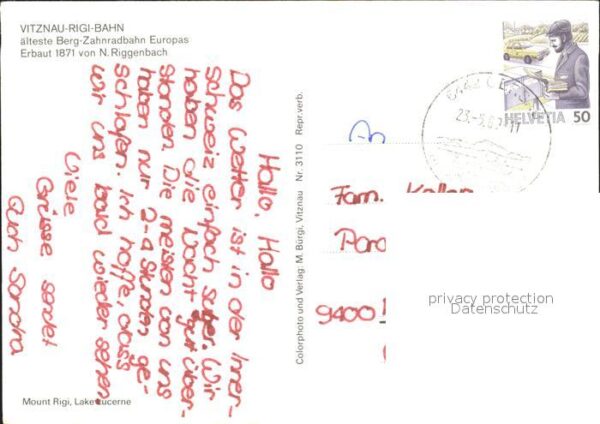 VITZNAU-RIGI-BAHN
älteste Berg-Zahnradbahn Europas
Erbaut 1871 von N. Riggenbach
Hallo, Hallo
Das Wetter ist in der Inner-
schweiz einfach super. Wir
haben die Nacht gut über-
standen. Die meisten von uns
haben nur 2-4 Stunden ge-
schlafen. Ich hoffe, dass
wir uns bald wieder sehen
Viele
Grüsse sendet
Euch Sandra
Mount Rigi, Lake Lucerne
Colorphoto und Verlag: M. Bürgi, Vitznau Nr. 3110 Repr. verb.
HELVETIA 50
An
Fam.
9400
privacy protection
Datenschutz